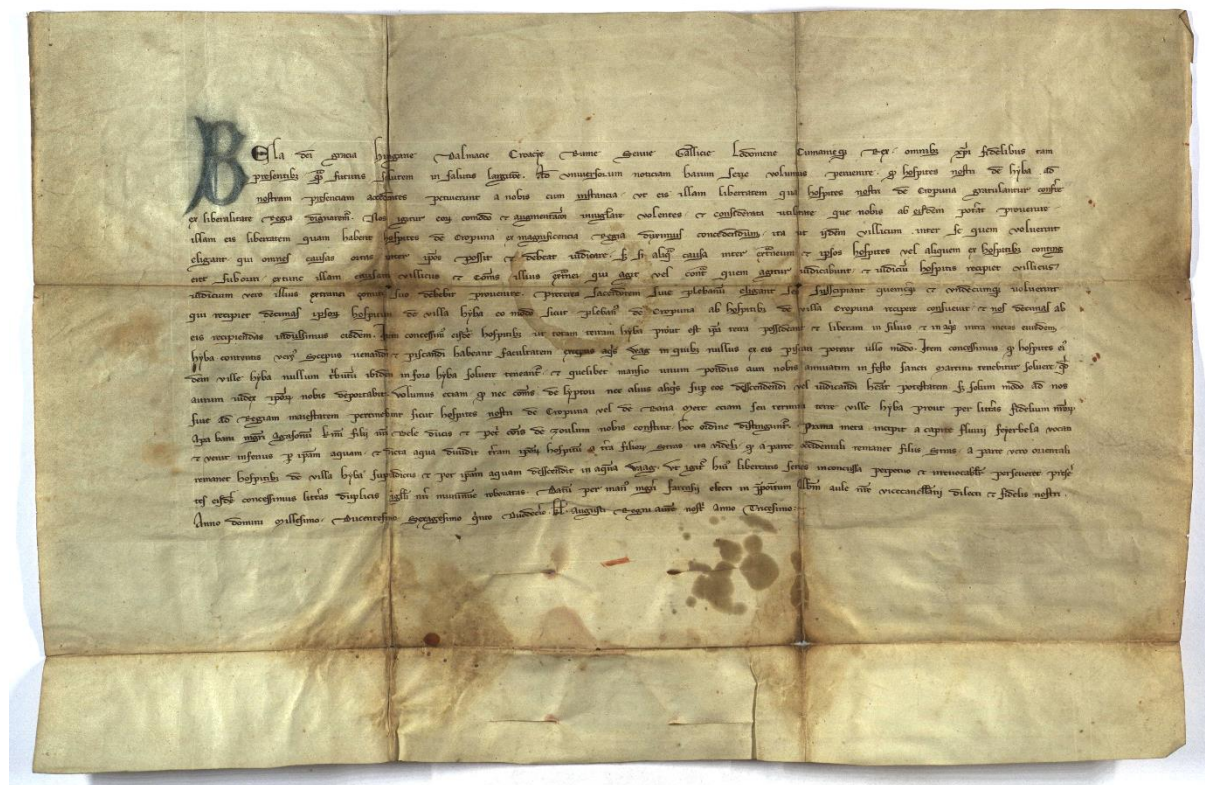 BEla dei gracia Hungarie Dalmacie Croacie Rame Seruie Gallicie Lodomerie Cumanieq3 Rex omnibus xpi fidelibus tam
presentibus qm futuris salutem in salutis largitore. Ad vniuersorum noticiam harum serie volumus peruenire. q hospites nostri de hyba ad
nostram presenciam accedentes petiuerunt a nobis cum instancia. vt eis illam libertatem qua hospites nostri de Cropuna gratulantur
ex liberalitate Regia dignaremur. Nos igitur eorum comodo et augmentacioni inuigilare volentes. et considerata vtilitate que nobis ab eisdem poterit prouenire.
illam eis libertatem quam habent hospites de Cropuna ex magnificencia Regia duximus concedendam. ita vt ijdem villicum inter se quem voluerint
eligant. qui omnes causas ortas inter ipsos possit et debeat iudicare. Et si aliqua causa inter extraneum et ipsos hospites vel aliquem ex hospitibus
suboriri. extunc illam causam villicus et Comes illius extranei qui agit vel contra quem agitur iudicabunt. et iudicium hospitis recipiet villicus.
iudicium vero illius extranei comiti suo debebit prouenire. Preterea sacerdotem siue plebanum eligant seu suscipiant quemcumq3 et vndecumq3 voluerint.
qui recipiet decimas ipsorum hospitum de villa hyba eo modo sicut plebanus de Cropuna ab hospitibus de villa Cropuna recipere consueuit. et nos decimas ab
eis recipiendas indulsimus eisdem. Item concessimus eisdem hospitibus vt totam terram hyba prout est ipsa terra possideant et liberam in siluis et in aquis intra metas eiusdem
hyba contentis venandi et piscandi habeant facultatem exceptis aqua Vvag in quibus nullus ex eis piscari poterit vllo modo. Item concessimus q hospites
dem ville hyba nullum tributum ibidem in foro hyba soluere teneantur. et quelibet mansio vnum pondus auri nobis annuatim in festo sancti Martini tenebitur soluere. quod
aurum iudex ipsorum nobis deportabit. Volumus eciam q nec comes de Lyptou nec alius aliquis super eos descendendi vel iudicandi habeat potestatem. set solum modo ad nos
siue ad Regiam maiestatem pertinebunt sicut hospites nostri de Cropuna vel de Bana. Mete eciam seu termini terre ville hyba prout per litteras fidelium nostrorum
Apa bani magistri Agasonum karissimi filij nostri Bele ducis et Petri comitis de Zoulum nobis constitit. hoc ordine distinguntur. Prima meta incipit a capite fluuij Feyerbela vocati
et venit inferius per ipsam aquam. et dicta aqua diuidit terram ipsorum hospitum a terra filiorum Serias. ita videlicet q a parte occidentali remanet filijs Serias. a parte vero orientali
remanet hospitibus de villa hyba supradictis et per ipsam aquam descendit in aquam Vvaag. Vt igitur huius libertatis series inconcussa perpetuo et irreuocabiliter perseueret
tes eisdem concessimus litteras duplicis sigilli nostri munimine roboratas. Datum per manus magistri Farcasij electi in prepositum Albensem aule nostre vicecancellarij dilecti et fidelis nostri.
Anno domini Millesimo. Ducentesimo Sexagesimo Quinto Duodecimo. kl. Augusti. Regni autem nostri Anno Tricesimo.